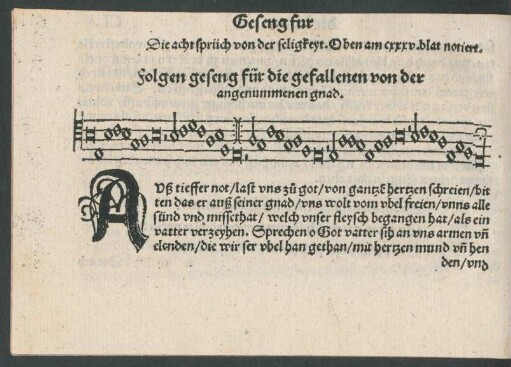 Geseng fur
Die acht sprüch von der seligkeyt. Oben am cxxxv. blat notiert.
Folgen geseng für die gefallenen von der
angenummenen gnad.
AVß tieffer not/last vns zů got/von gantzē hertzen schreien/bit
ten das er auß seiner gnad/vns wolt vom vbel freien/vnns alle
sünd vnd missethat/ welch vnser fleysch begangen hat/als ein
vatter verzeyhen. Sprechen o Got vatter sih an vns armen vñ
elenden/die wir ser vbel han gethan/mit hertzen mund vñ hen
den/vnd